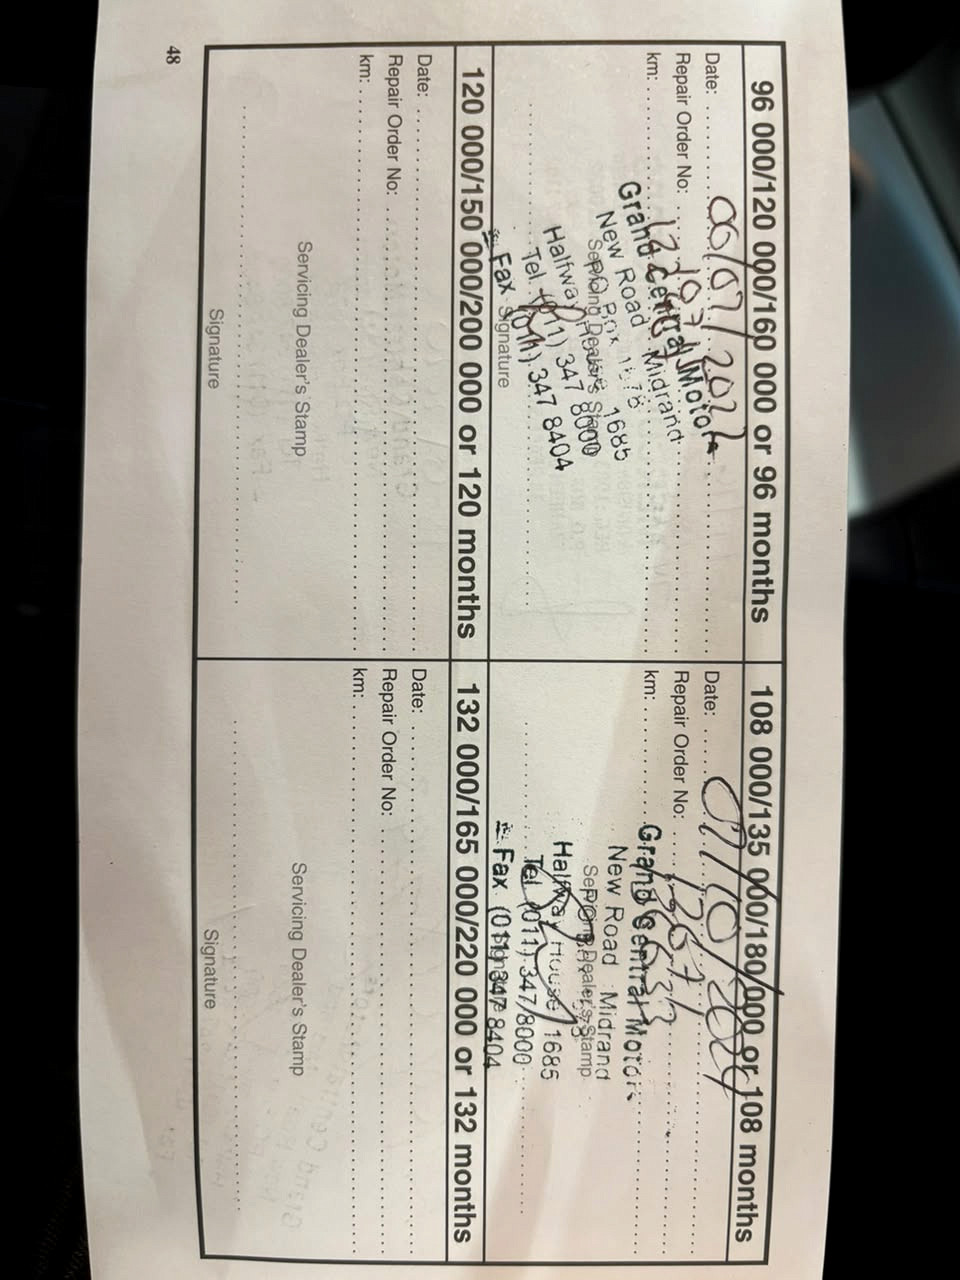 96 000/120 000/160 000 or 96 months
Date:
Repair Order No:
km:
Grand Central Motors
New Road Midrand
Servicing Dealer's Stamp
1685
Halfway House
Tel (011) 347 8000
Signature
Fax (011) 347 8404
108 000/135 000/180 000 or 108 months
Date: 07/10/2024
Repair Order No:
km:
Grand Central Motors
New Road Midrand
Servicing Dealer's Stamp
Halfway House 1685
Tel (011) 347 8000
Signature
Fax (011) 347 8404
120 000/150 000/200 000 or 120 months
Date:
Repair Order No:
km:
Servicing Dealer's Stamp
Signature
132 000/165 000/220 000 or 132 months
Date:
Repair Order No:
km:
Servicing Dealer's Stamp
Signature
48